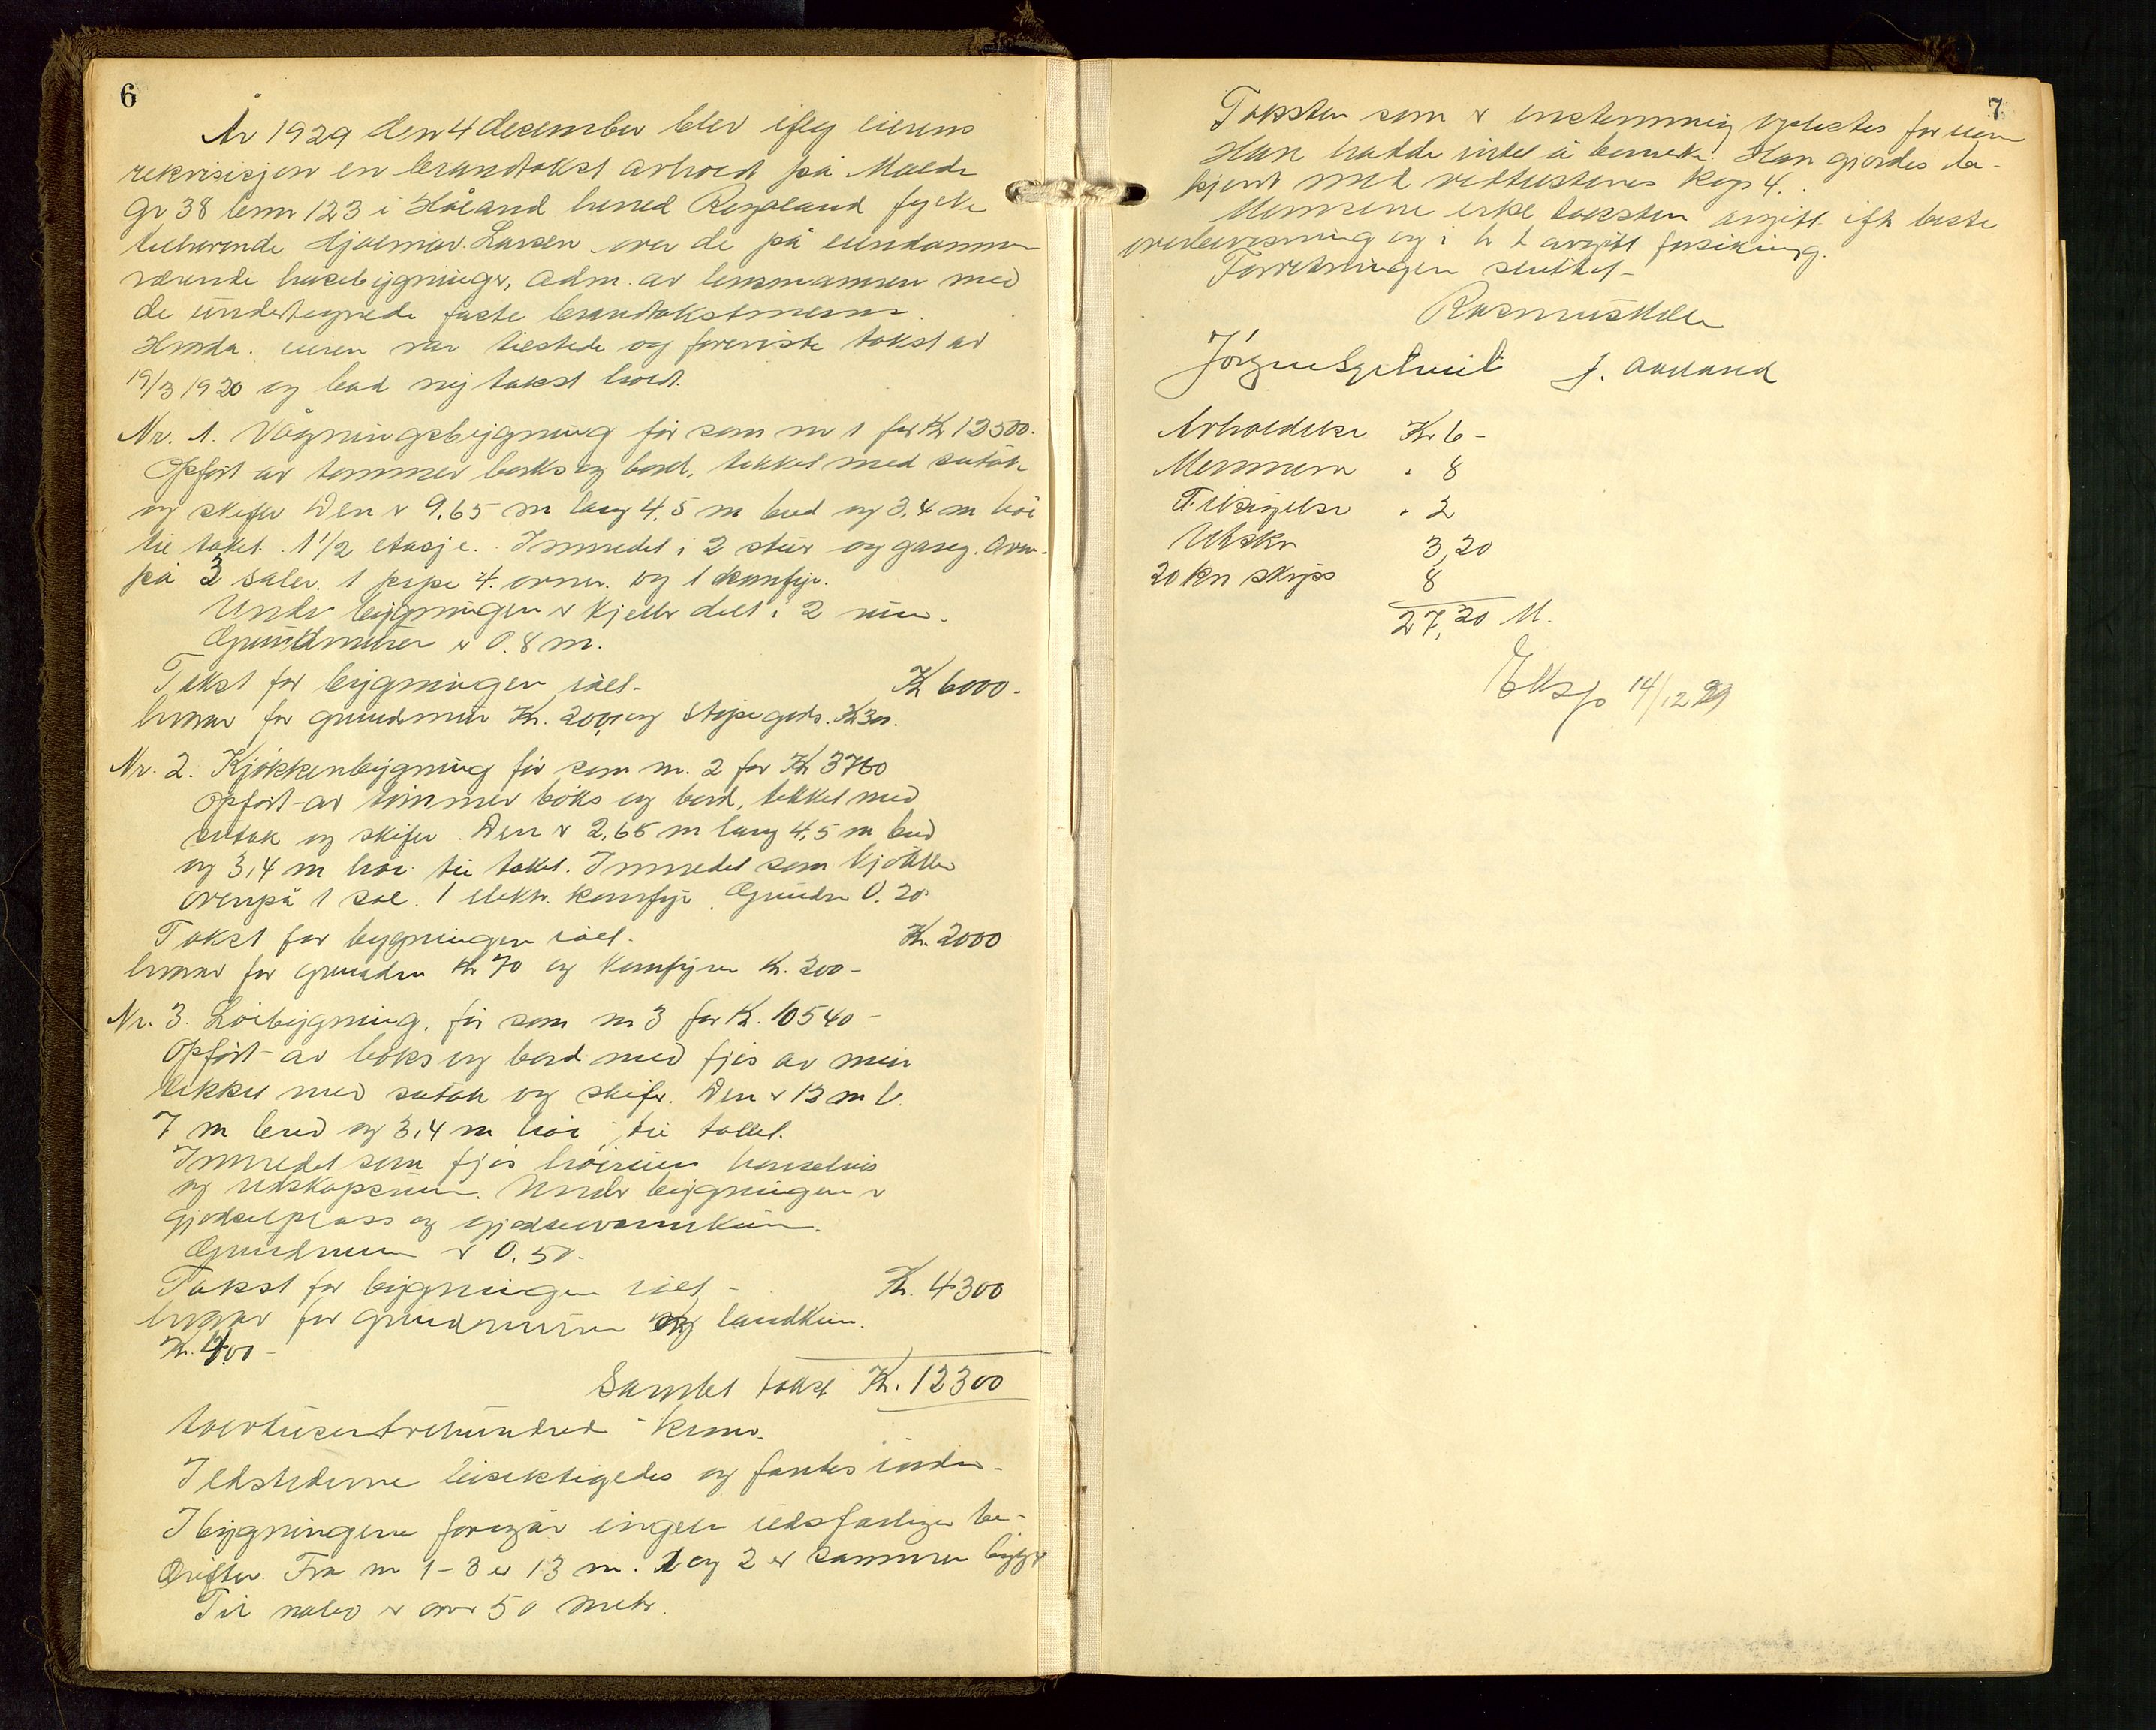 6
År 1929 den 4 desember blev ifølg eierens
rekvisisjon en brandtakst avholdt på Molde
Gr 38 brnr 123 i Håland herred Rogaland fylke
tilhørende Hjalmar Larsen over de på eiendommen
værende husebygninger, Adm. av lensmannen med
de undertegnede faste brandtakstmenn.
eieren var tilstede og foreviste takst av
19/3 1920 og bad nij takst holdt.
Nr. 1. Våningsbygning før som nr 1 for Kr 12500.
Opført av tømmer boks og bord, tekket med sutak
og skifer Den er 9,65 m lang 4,5 m bred og 3,4 m høi
til taket. 1 1/2 etasje. Innredet i 2 stuer og gang. Oven-
på 3 saler. 1 pipe 4 ovner. og 1 komfyr.
Under bygningen er kjeller delt i 2 rum.
Grundmuren er 0.8 m.
Takst for bygningen ialt- Kr 6000.-
hvorav for grundmur Kr. 200, og støpegods. Kr 300.
Nr. 2. Kjøkkenbygning før som nr. 2 for Kr 3760
Opført av tømmer boks og bord, tekket med
sutak og skifer. Den er 2,65 m lang 4,5 m bred
og 3,4 m høi til taket. Innredet som kjøkken
ovenpå 1 sal. 1 elektr. komfyr. Grundm 0.20.
Takst for bygningen ialt. Kr. 2000
hvorav for grundm Kr 70 og komfyren Kr. 200-
Nr. 3. Løibygning. før som nr 3 for Kr. 10540-
Opført av boks og bord med fjøs av mur
tekket med sutak og skifer. Den er 13 m l.
7 m bred og 3,4 m høi til taket.
Innredet som fjøs høirum hønsehus
og redskapsrum. Under bygningen er
gjødselplass og gjødselvannskum.
Grundmuren er 0.50.
Takst for bygningen ialt - Kr. 4300
hvorav for grundmuren og landkum.
Kr. 400-
Samlet takst Kr. 12300
tolvtusentrehundred kroner.
Ildstederne besiktigedes og fantes i orden.
I bygningene foregår ingen ildsfarlige be-
drifter. Fra nr 1-3 er 13 m. 1 og 2 er sammenbygget
Til nabo er over 50 meter.
7
Taksten som er enstemmig oplestes for eieren
Han hadde intet å bemerke. Han gjordes be-
kjent med vedtektenes Kap 4.
Mennene erkl taksten avgitt efter beste
overbevisning og i h t avgitt forsikring.
Forretningen sluttet-
Jørgen J. Aadland
Avholdelse Kr 6-
Mennene " 8
Tilsigelse " 2
Utskr 3,20
20 km skyss 8
27,20
Eksp 14/12 29